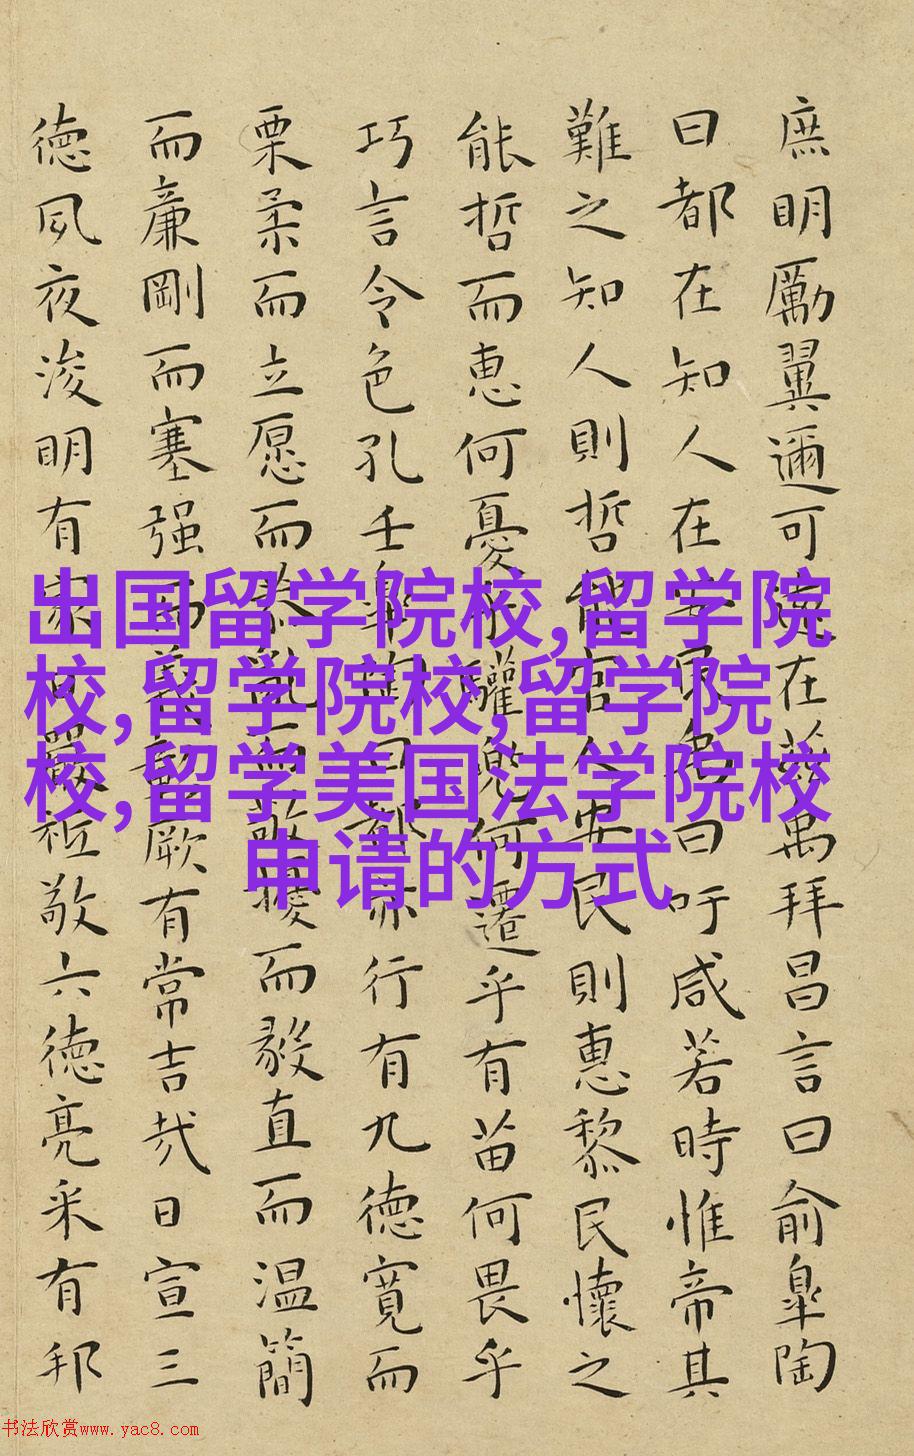 庶明勵翼邇可遠在茲禹拜昌言曰俞皐陶
曰都在知人在安民禹曰吁咸若時惟帝其
難之知人則哲能官人安民則惠黎民懷之
能哲而恵何憂乎兜何遷乎有苗何畏乎
巧言令色孔壬皐陶曰都亦行有九德寬而
栗柔而立愿而恭亂而敬擾而毅直而温簡
而廉剛而塞强而義彰厥有常吉哉日宣三
德夙夜浚明有家日嚴祗敬六德亮采有邦
出国留学院校,留学院
校,留学院校,留学院
校,留学美国法学院校
申请的方式
书法欣赏www.yac8.com